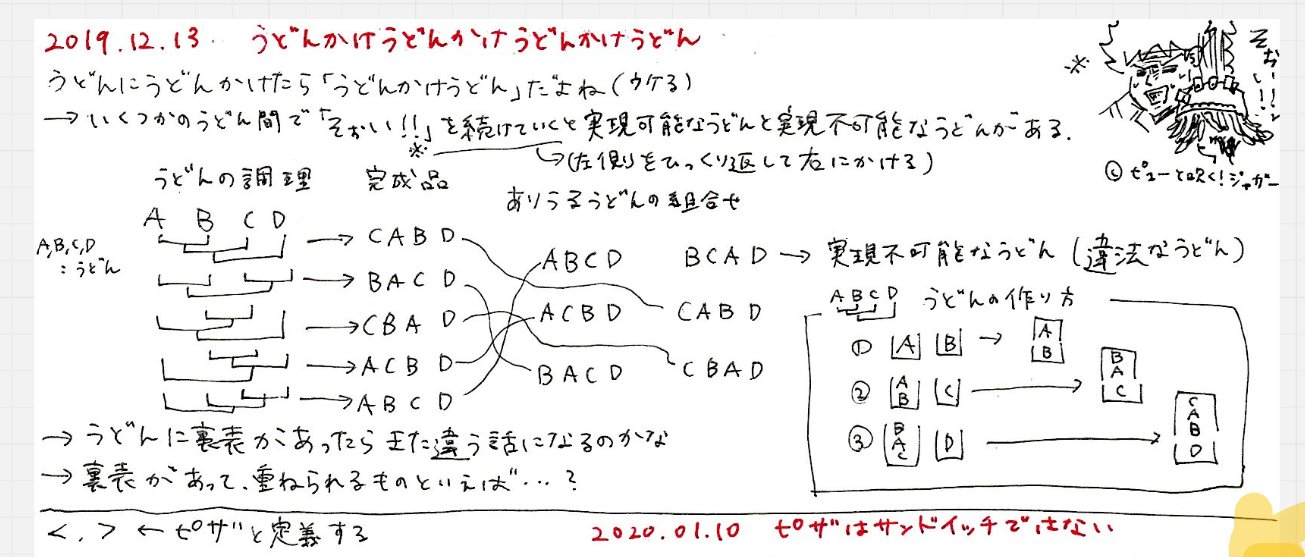 2019.12.13. うどんかけうどんかけうどんかけうどん
うどんにうどんかけたら「うどんかけうどん」だよね(ウケる)
→いくつかのうどん間で「そぉい!!」を続けていくと実現可能なうどんと実現不可能なうどんがある.
※
↳(左側をひっくり返して右にかける)
※
そぉーい!!
©ピューと吹く!ジャガー
うどんの調理 完成品
ありうるうどんの組合せ
A B C D
A,B,C,D
:うどん
→ C A B D
→ B A C D
→ C B A D
→ A C B D
→ A B C D
A B C D B C A D → 実現不可能なうどん(違法なうどん)
A C B D C A B D
B A C D C B A D
A B C D うどんの作り方
① A B → A B
② A B C → B A C
③ B A C D → C A B D
→ うどんに裏表があったらまた違う話になるのかな
→ 裏表があって、重ねられるものといえば…?
<,> ← ピザと定義する
2020.01.10 ピザはサンドイッチではない